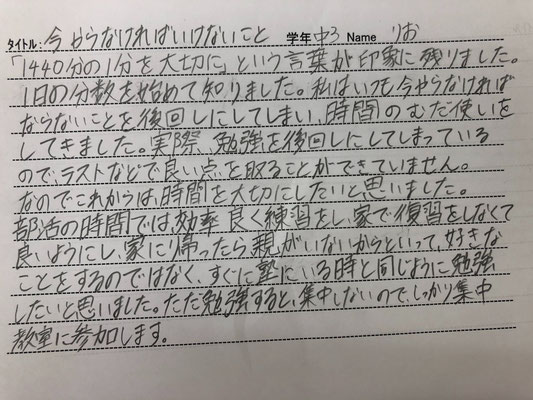 タイトル: 今やらなければいけないこと 学年 中3 Name りお
「1440分の1分を大切に」という言葉が印象に残りました。
1日の分数を始めて知りました。私はいつも今やらなければ
ならないことを後回しにしてしまい、時間のむだ使いを
してきました。実際、勉強を後回しにしてしまっている
ので、テストなどで良い点を取ることができていません。
なのでこれからは、時間を大切にしたいと思いました。
部活の時間では、効率良く練習をし、家で復習をしなくて
良いようにし、家に帰ったら、親がいないからといって、好きな
ことをするのではなく、すぐに塾にいる時と同じように勉強
したいと思いました。ただ勉強すると、集中しないので、しっかり集中
教室に参加します。